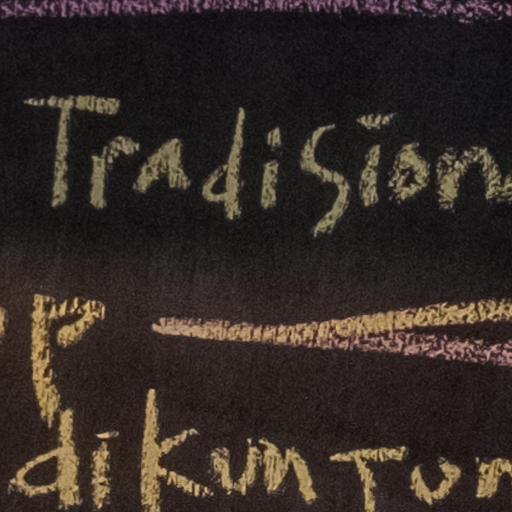 Tradision
p
dikunTur